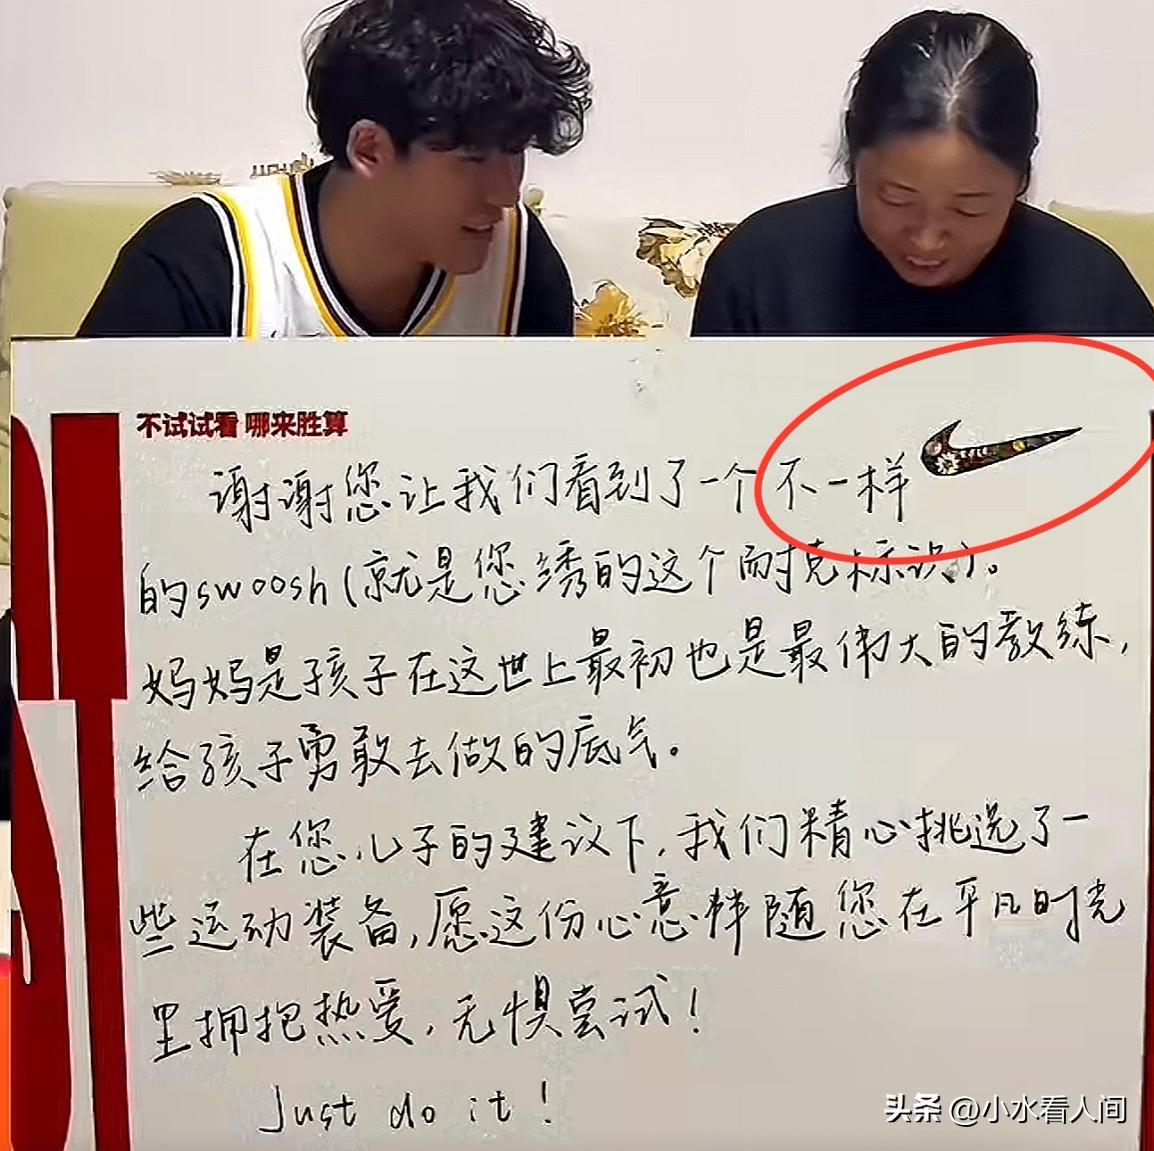 不试试看 哪来胜算
谢谢您让我们看到了一个不一样
的swoosh(就是您绣的这个耐克标识)。
妈妈是孩子在这世上最初也是最伟大的教练,
给孩子勇敢去做的底气。
在您儿子的建议下,我们精心挑选了一
些运动装备,愿这份心意伴随您在平凡时光
里拥抱热爱,无惧尝试!
Just do it!
头条 @小水看人间